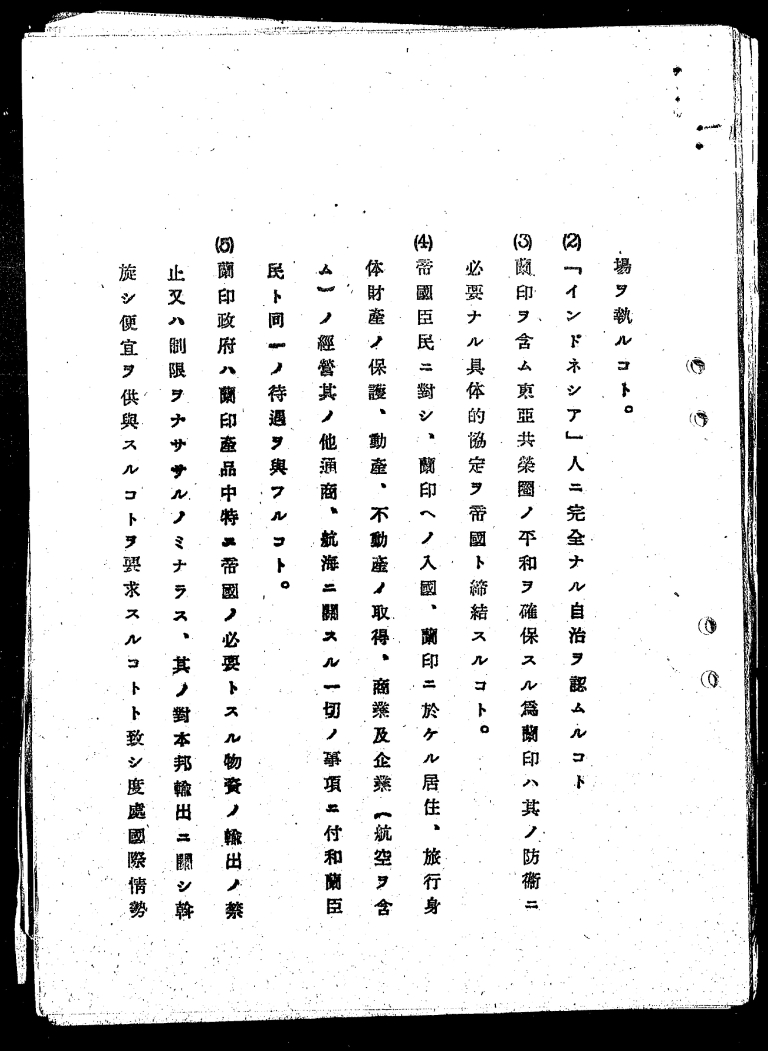 場ヲ執ルコト。
(2)「インドネシア」人ニ完全ナル自治ヲ認ムルコト
(3)蘭印ヲ含ム東亞共榮圈ノ平和ヲ確保スル爲蘭印ハ其ノ防衞ニ
必要ナル具体的協定ヲ帝國ト締結スルコト。
(4)帝國臣民ニ對シ、蘭印ヘノ入國、蘭印ニ於ケル居住、旅行身
体財產ノ保護、動產、不動產ノ取得、商業及企業(航空ヲ含
ム)ノ經營其ノ他通商、航海ニ關スル一切ノ事項ニ付和蘭臣
民ト同一ノ待遇ヲ與フルコト。
(5)蘭印政府ハ蘭印產品中特ニ帝國ノ必要トスル物資ノ輸出ノ禁
止又ハ制限ヲナササルノミナラス、其ノ對本邦輸出ニ關シ斡
旋シ便宜ヲ供與スルコトヲ要求スルコトト致シ度處國際情勢